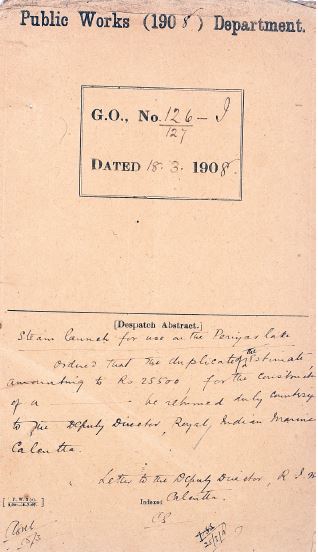 Public Works (1908) Department.
G.O., No. 126 - I
127
DATED 18. 3. 1908.
[Despatch Abstract.]
Steam launch for use on the Periyar lake
Ordered that the duplicate of the Estimate,
amounting to Rs 25500, for the construct
of a - be returned duly countersg
to the Deputy Director, Royal Indian Marine
Calcutta.
Letter to the Deputy Director, R I M
Indexed Calcutta.